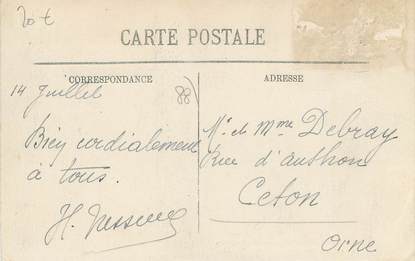 20 €
CARTE POSTALE
CORRESPONDANCE
ADRESSE
14 Juillet
88
Bien cordialement
à tous.
H.
Mr. et Mme Debray
Rue d'authon
Ceton
Orne